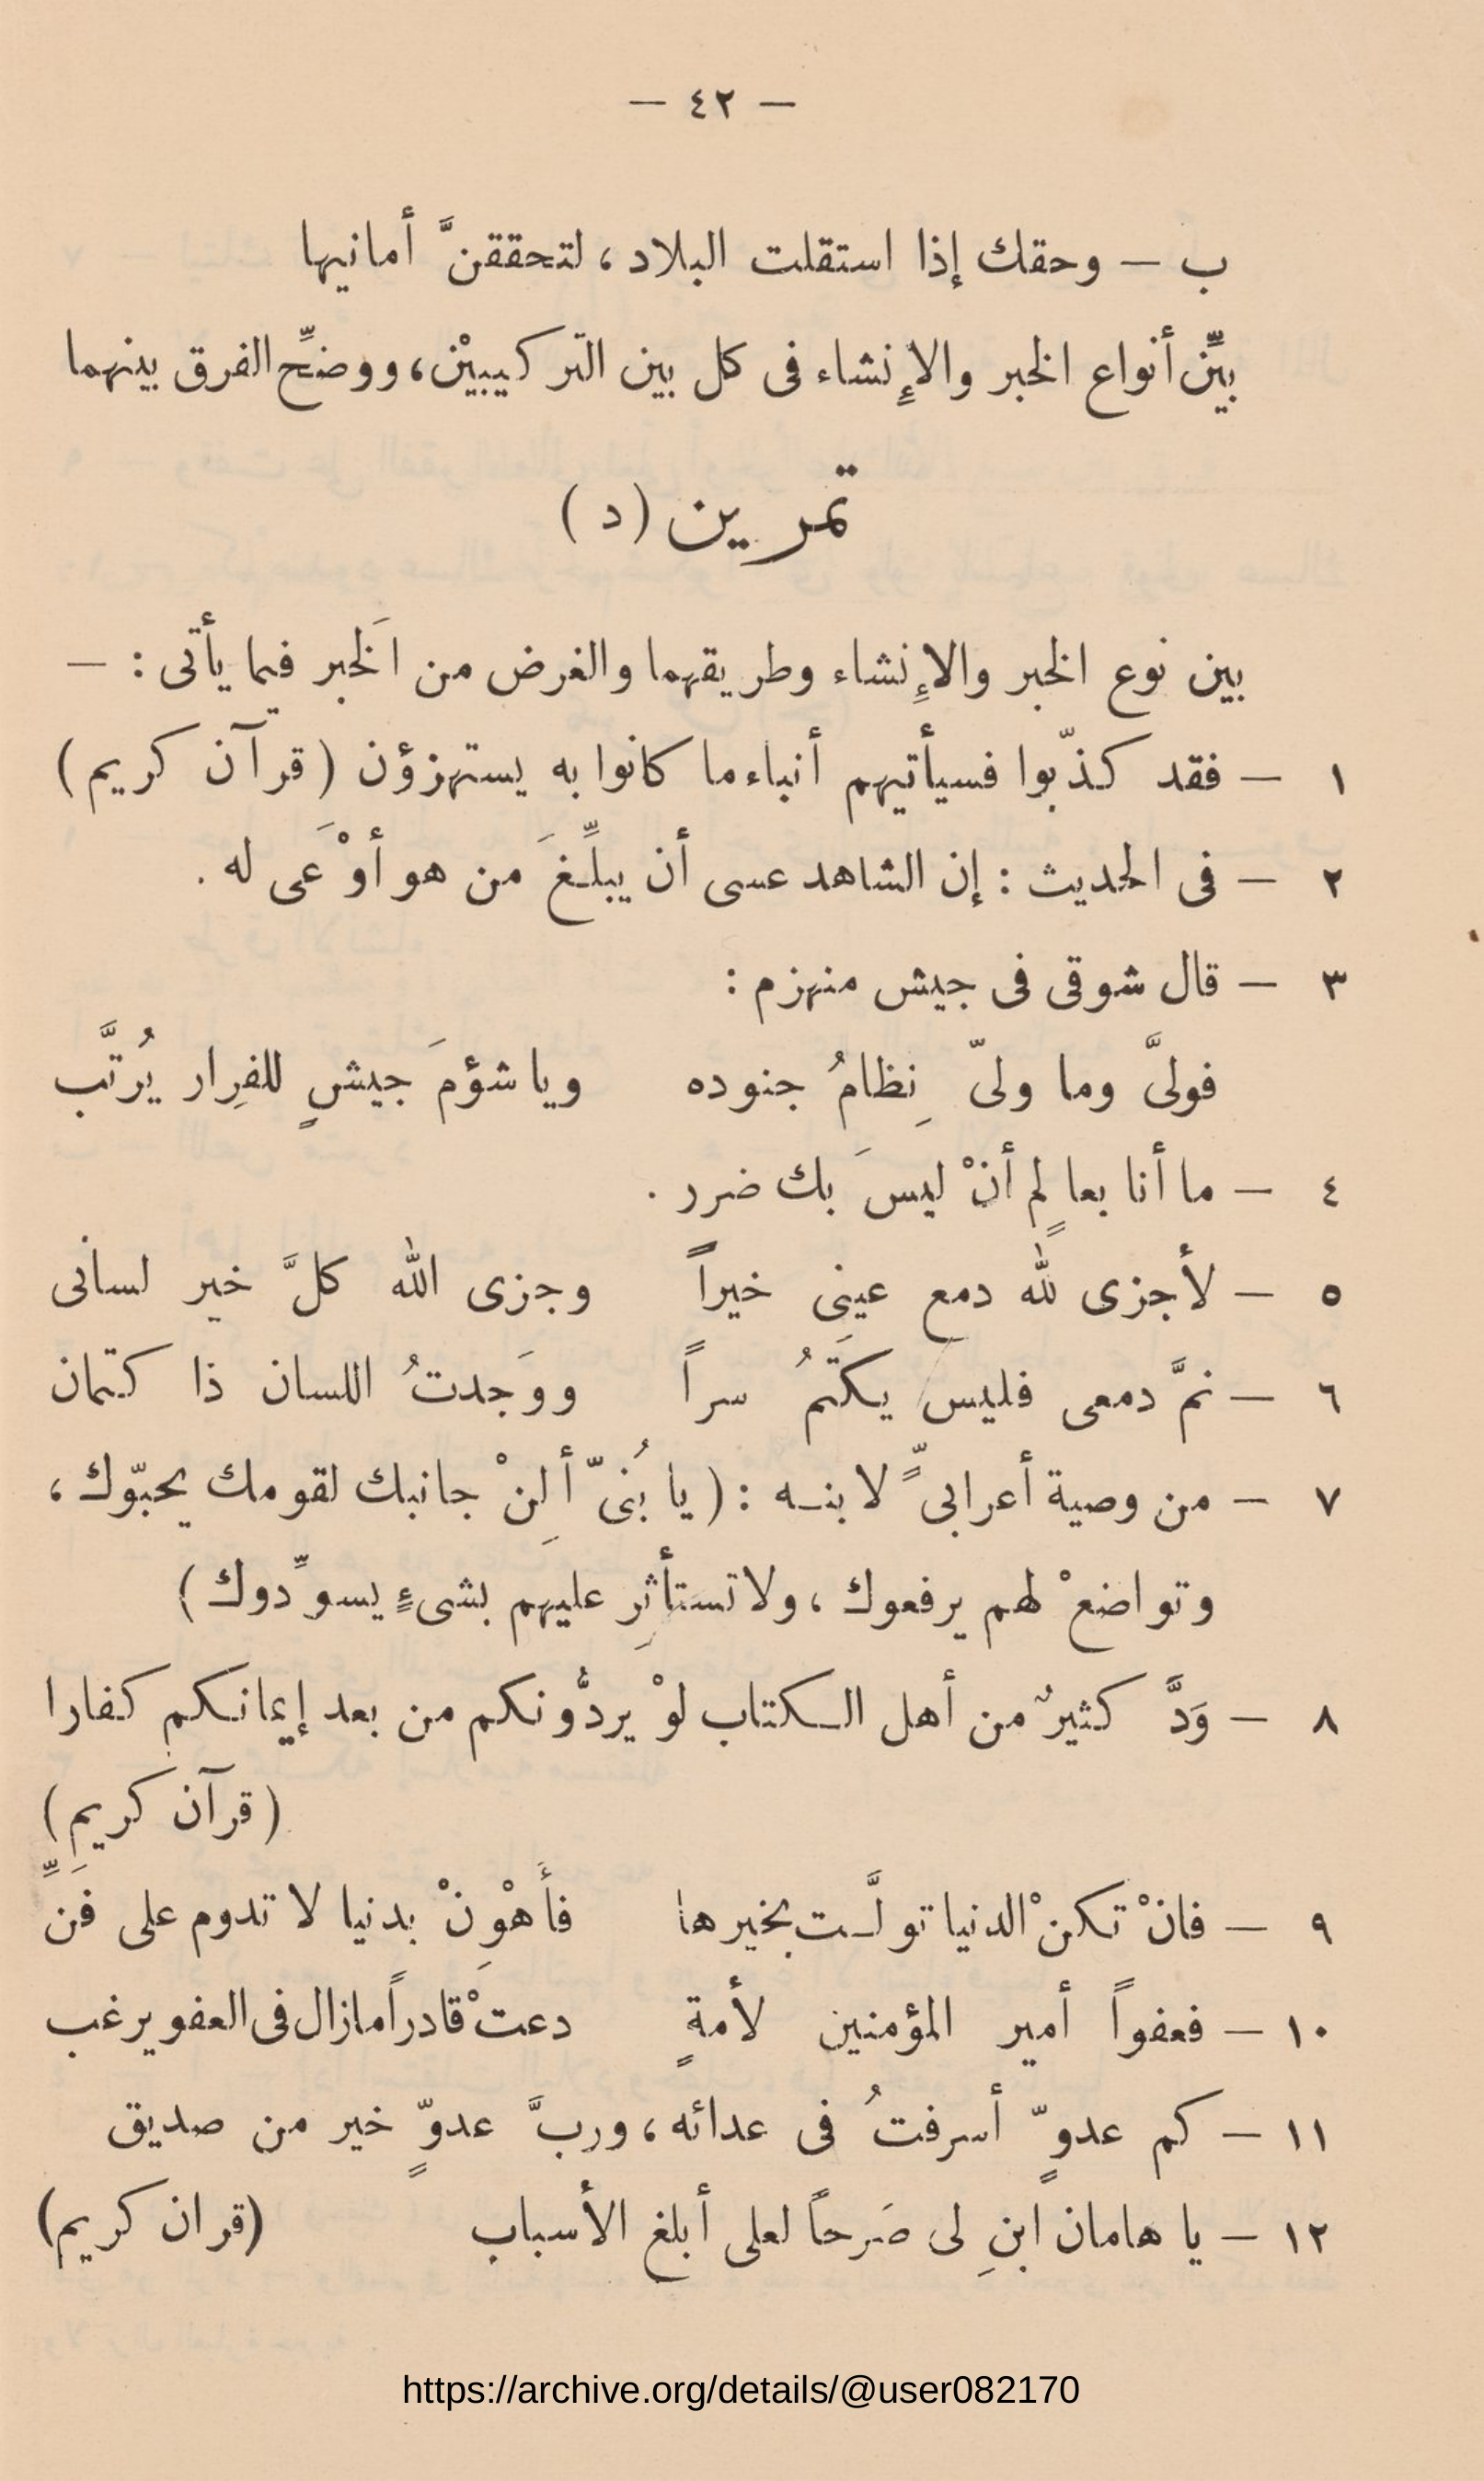 — ٤٢ —
ب — وحقك إذا استقلت البلاد ، لتحققنَّ أمانيها
بيِّن أنواع الخبر والإِنشاء فى كل بين التركيبيْن ، ووضِّح الفرق بينهما
تمرين ( د )
بين نوع الخبر والإِنشاء وطريقهما والغرض من اَلخبر فيما يأتى : —
١ — فقد كذّبوا فسيأتيهم أنباء ما كانوا به يستهزؤن ( قرآن كريم )
٢ — فى الحديث : إن الشاهد عسى أن يبلِّغَ من هو أوْعَى له .
٣ — قال شوقى فى جيش منهزم :
فولىَّ وما ولىّ نِظامُ جنوده وياشؤمَ جيشٍ للفِرار يُرتَّب
٤ — ما أنا بعالمٍ أنْ ليسَ بك ضرر .
٥ — لأجزى لله دمع عينى خيراً وجزى الله كلَّ خير لسانى
٦ — نمَّ دمعى فليس يكَتمُ سراً ووَجدتُ اللسان ذا كتمان
٧ — من وصية أعرابىٍّ لابنه : ( يا بُنىّ ألِنْ جانبك لقومك يحبّوك ،
وتواضعْ لهم يرفعوك ، ولا تستأثِر عليهم بشىءٍ يسوِّدوك )
٨ — وَدَّ كثيرٌ من أهل الكتاب لوْ يردُّونكم من بعد إيمانكم كفارا
( قرآن كريم )
٩ — فانْ تكنْ الدنيا تولَّت بخيرها فأَهْوِنْ بدنيا لا تدوم على فَنِّ
١٠ — فعفواً أمير المؤمنين لأمةٍ دعتْ قادراً مازال فى العفو يرغب
١١ — كم عدوٍّ أسرفتُ فى عدائه ، وربَّ عدوٍّ خير من صديق
١٢ — يا هامان ابنِ لى صَرحاً لعلى أبلغ الأسباب (قران كريم)
https://archive.org/details/@user082170